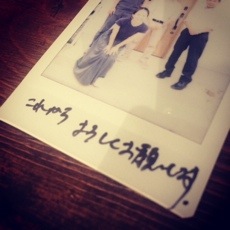 これからよろしくお願いします.